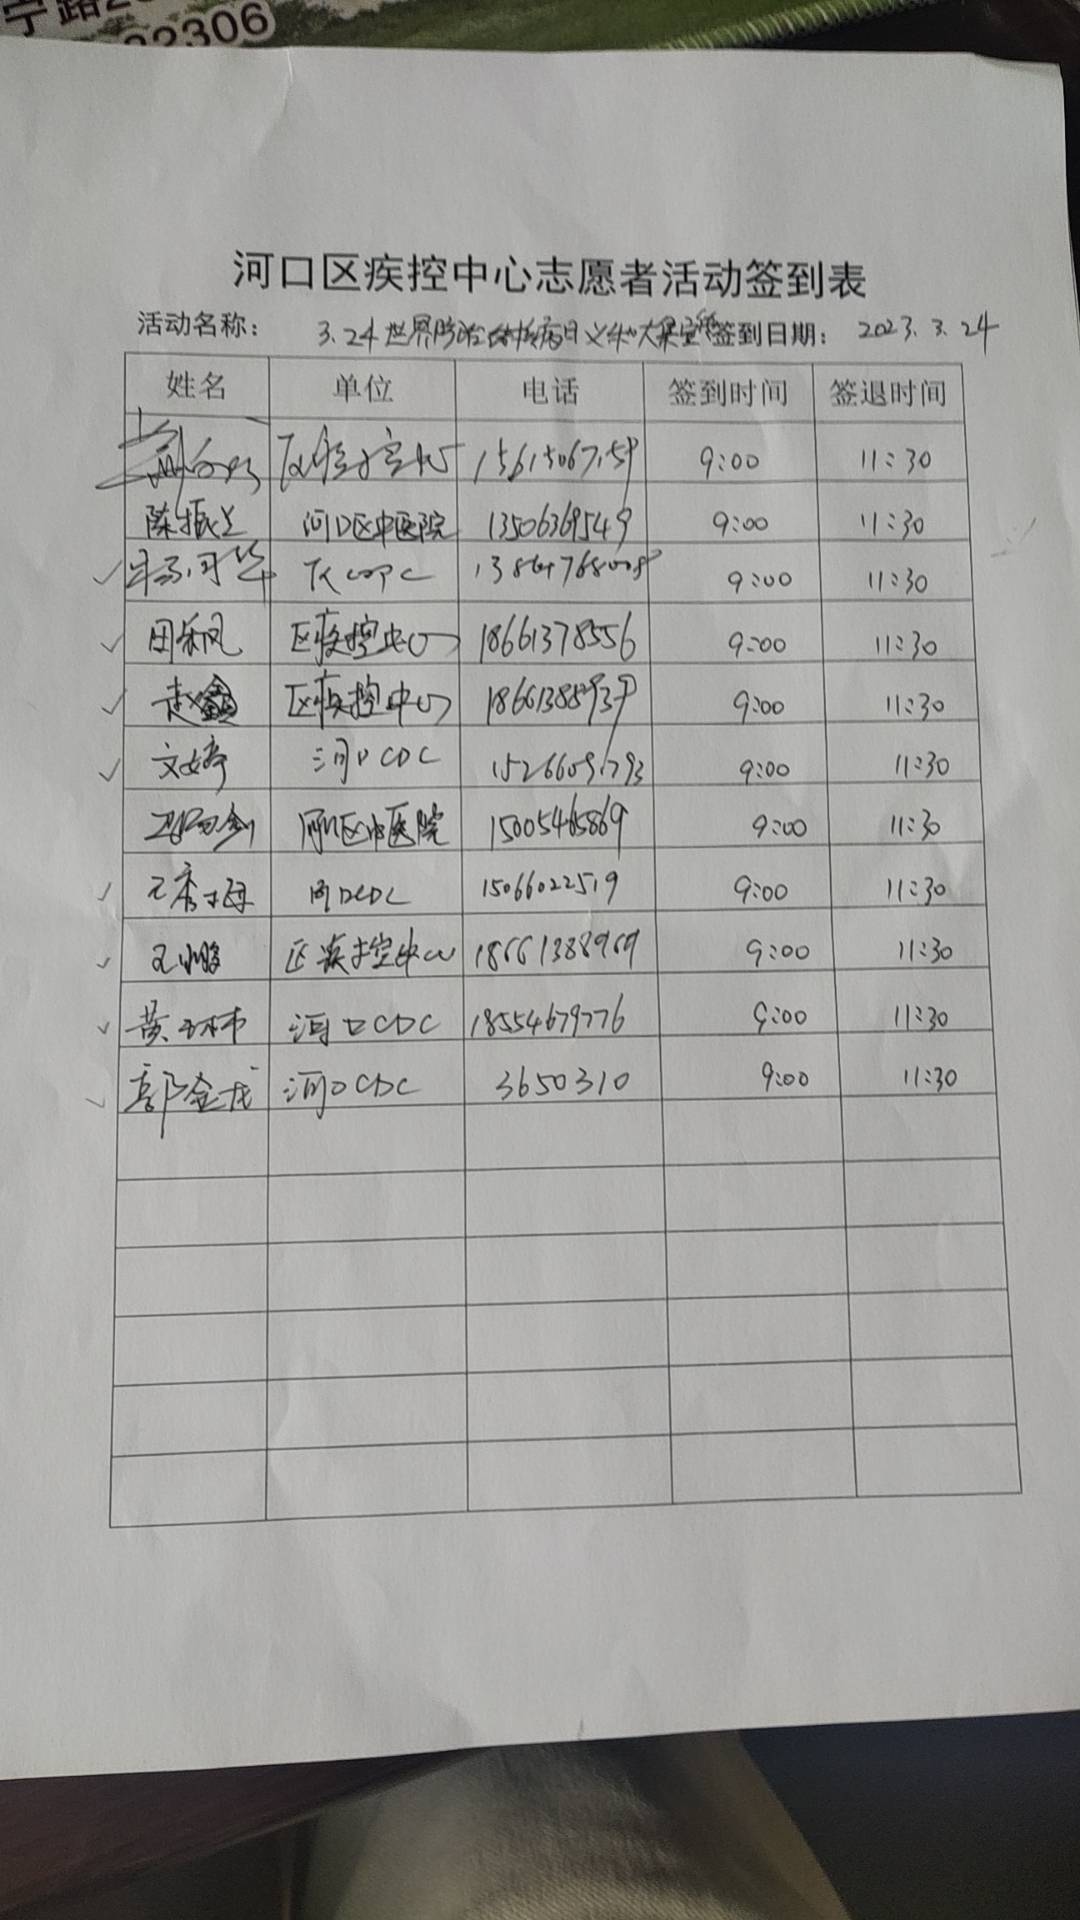 宁路2
22306
河口区疾控中心志愿者活动签到表
活动名称： 3.24世界防治结核病日义诊大集宣传 签到日期： 2023.3.24
姓名 单位 电话 签到时间 签退时间
9:00 11:30
河口区中医院 13506369549 9:00 11:30
9:00 11:30
区疾控中心 18661378556 9:00 11:30
赵鑫 区疾控中心 18661388939 9:00 11:30
文婷 河口CDC 15266091793 9:00 11:30
河口区中医院 15005465869 9:00 11:30
河口CDC 15066022519 9:00 11:30
王小鹏 区疾控中心 18661388969 9:00 11:30
黄 河口CDC 18554679776 9:00 11:30
郭金龙 河口CDC 3650310 9:00 11:30